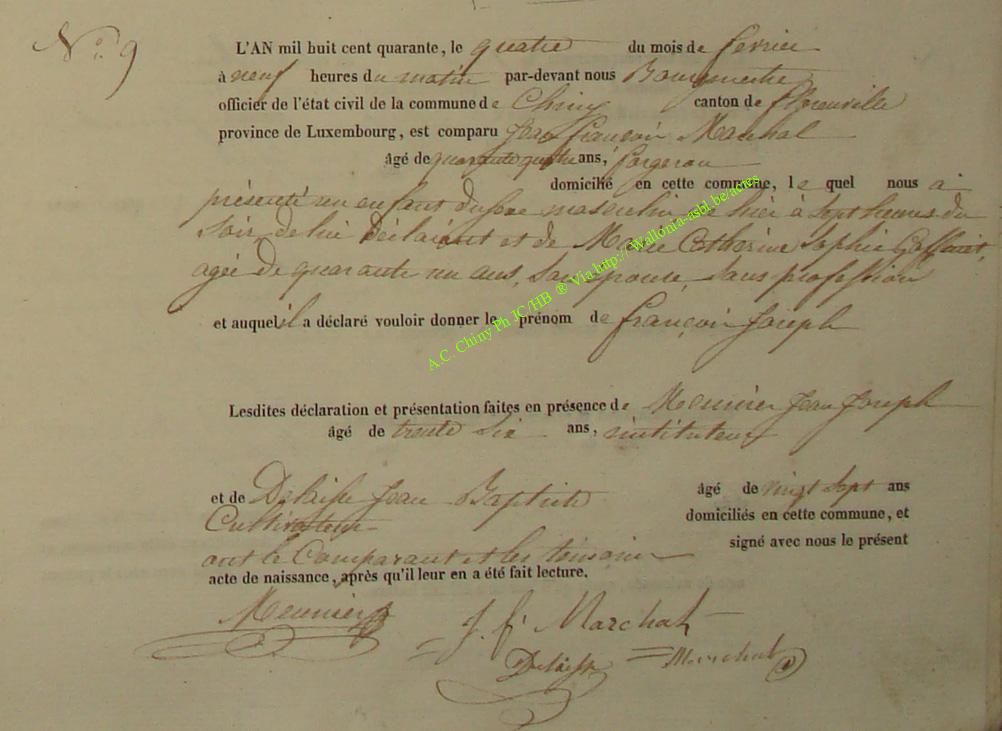 N° 9
L'AN mil huit cent quarante, le quatre du mois de fevrier
à neuf heures du matin par-devant nous Bourgmestre
officier de l'état civil de la commune de Chiny canton de florenville
province de Luxembourg, est comparu Jean françois Marchal
âgé de quarante quatre ans, forgeron
domicilié en cette commune, le quel nous a
présenté un enfant du sexe masculin né hier à sept heures du
soir, de lui déclarant et de Marie Catherine Sophie
agée de quarante un ans, son épouse, sans profession
et auquel il a déclaré vouloir donner le prénom de françois Joseph
Lesdites déclaration et présentation faites en présence de Meunier Jean Joseph
âgé de trente six ans, instituteur
et de Delaisse Jean Baptiste âgé de vingt sept ans
Cultivateur domiciliés en cette commune, et
ont le Comparant et les témoins signé avec nous le présent
acte de naissance, après qu'il leur en a été fait lecture.
Meunier J. f. Marchal
Delaisse Marchal
A.C. Chiny Ph JC/HB ® Via http://Wallonia-asbl.be/actes